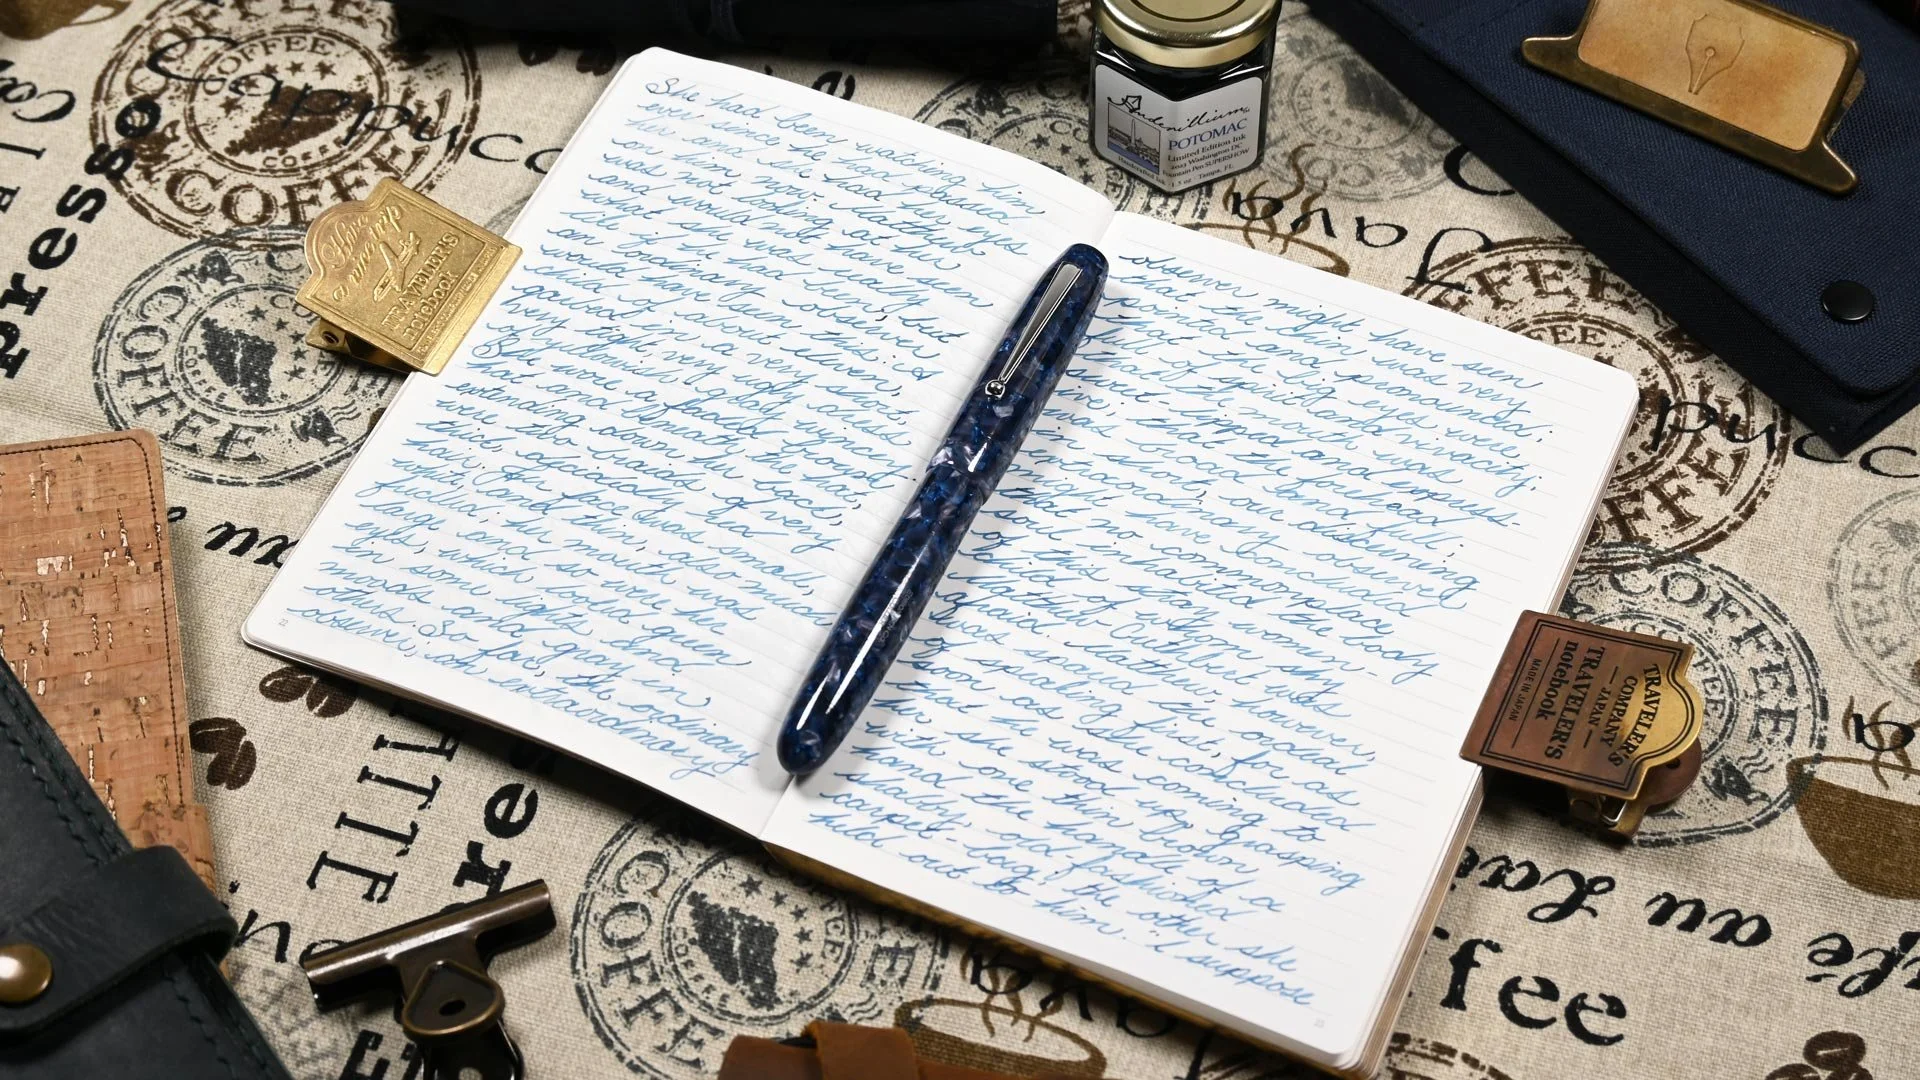 She had been watching him
ever since he had passed
her and had her eyes
on him now. Matthew
was not looking at her
and would not have seen
what she was really
like if he had been, but
an ordinary observer
would have seen this: a
child of about eleven,
garbed in a very short,
very tight, very ugly dress
of yellowish gray wincey.
She wore a faded brown
hat and beneath the hat,
extending down her back,
were two braids of very
thick, decidedly red
hair. Her face was small,
white and thin, also much
freckled, her mouth was
large and so were her
eyes, which looked green
in some lights and
moods and gray in
others. So far, the ordinary
observer; extraordinary
22
observer might have seen
that the chin was very
pointed and pronounced;
that the big eyes were
full of spirit and vivacity;
that the mouth was
lipped and express-
ive; that the forehead
was broad and full;
in short, our discerning
extraordinary observer
might have concluded
that no commonplace
soul inhabited the body
of this stray woman
child of whom shy
Matthew Cuthbert was
afraid.
Matthew, however,
was spared the ordeal
of speaking first, for as
soon as she concluded
that he was coming to
her she stood up grasping
with one thin brown
hand the handle of a
shabby, old-fashioned
carpet-bag; the other she
held out to him. "I suppose
23
POTOMAC
Limited Edition Ink
2023 Washington DC
Fountain Pen SUPERSHOW
Tampa, FL
Have
a nice trip
TRAVELER'S
notebook
TRAVELER'S
COMPANY
JAPAN
TRAVELER'S
notebook
MADE IN JAPAN
COFFEE
COFFEE
Cappucc
presso
Java
COFFEE
COFFEE
COFFEE
Java
au